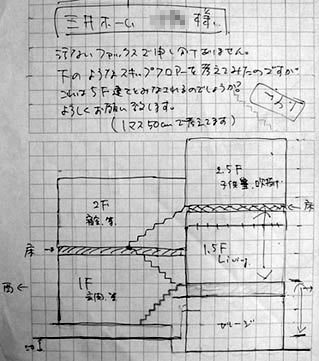 三井ホーム 様
汚ないファックスで申し分ありません。
下のようなスキップフロアーを考えてみたのですが
これは5F建てとみなされるのでしょうか?
よろしくお願い致します。
(1マス50cmで考えてます)
2.5F
子供室、吹抜け
2F
寝室、等
床
床
1.5F
Living
西 ←
1F
玄関、等
ガレージ